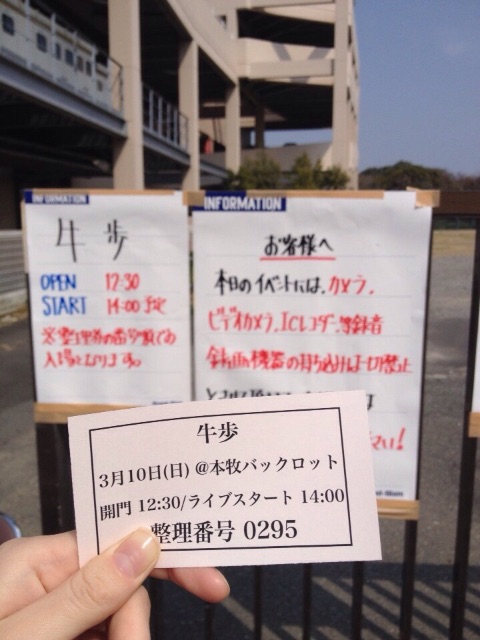 INFORMATION
牛歩
OPEN 12:30
START 14:00予定
※整理券の番号順での
入場となります。
INFORMATION
お客様へ
本日のイベントには、カメラ、
ビデオカメラ、ICレコーダー等録音
録画機器の持ち込みは一切禁止
さい!
牛歩
3月10日(日) @本牧バックロット
開門 12:30/ライブスタート 14:00
整理番号 0295